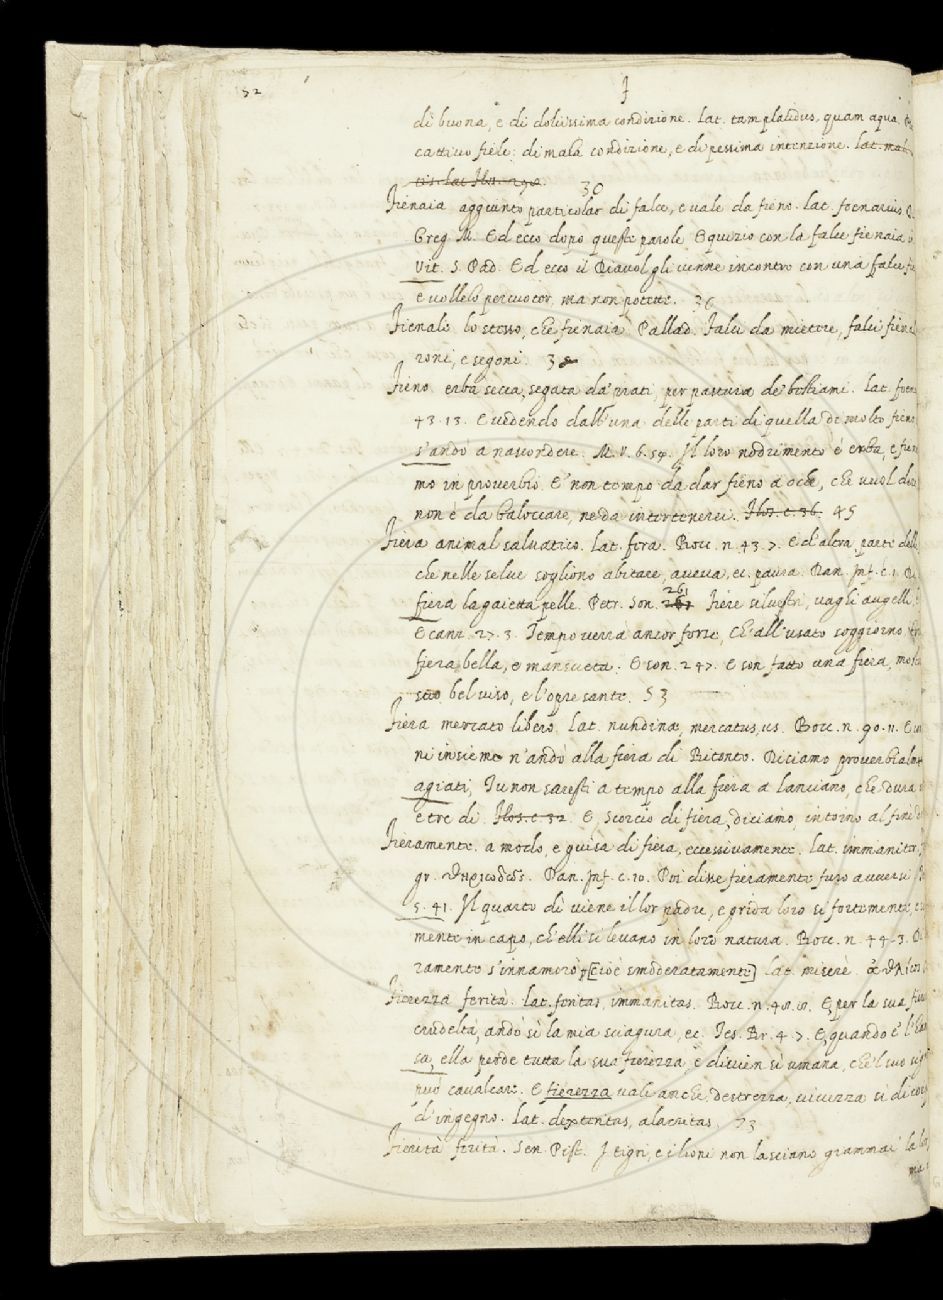 52
F
di buona, e di dolcissima condizione. Lat. tam placidus, quam aqua.
cattivo fiele: di mala condizione, e di pessima intenzione. Lat.
30
Fienaia aggiunto particolar di falce, e vale da fieno. lat. foenarius
Greg. M. Ed ecco dopo queste parole Equizio con la falce fienaia
Vit. S. Pad. Ed ecco il Diavol gli venne incontro con una falce
e vollelo percuoter, ma non potette. 36
Fienale lo stesso, che fienaia. Pallad. Falci da mietere, falci
roni, e segoni. 38
Fieno erba secca, segata da' prati, per pastura de' bestiami. Lat.
43. 13. E vedendo dall'una delle parti di quella di molto fieno
s'andò a nascondere. M. V. 6. 54. Il loro nodrimento è erba, e
mo in proverbio. E' non è tempo da dar fieno a oche, che vuol
non è da baloccare, ne da intertenersi. Flos. c. 36. 45
Fiera animal salvatico. Lat. fera. Bocc. n. 43. 7. E d'altra parte delle
che nelle selve sogliono abitare, aveva, ec. paura. Dan. Inf. c. 1.
fiera la gaietta pelle. Petr. Son. 261 Fiere silvestri, vaghi augelli,
E canz. 27. 3. Tempo verrà ancor forse, Ch'all'usato soggiorno
fiera bella, e mansueta. E son. 247. E son fatto una fiera,
bel viso, e l'opre sante. 53
Fiera mercato libero. Lat. nundinae, mercatus, us. Bocc. n. 90. 11. E
ni insieme n'andò alla fiera di Bitonto. Diciamo
agiati, Tu non saresti a tempo alla fiera a Lanciano, che dura
e tre dì. Flos. c. 32. E, Scorcio di fiera, diciamo, intorno al fine
Fieramente. a modo, e guisa di fiera, eccessivamente. Lat. immaniter.
gr. θηριωδῶς. Dan. Inf. c. 10. Poi disse fieramente furo avversi
5. 41. Il quarto dì viene il lor padre, e grida loro sì fortemente,
mente in capo, ch'elli si levano in loro natura. Bocc. n. 44. 3.
ramente s'innamorò [cioè smoderatamente] lat. miserè.
Fierezza ferità. Lat. feritas, immanitas. Bocc. n. 48. 8. E, per la sua
crudeltà, andò sì la mia sciagura, ec. Tes. Br. 4. 7. E, quando è
sa, ella perde tutta la sua fierezza, e divien sì umana, che'l suo
può cavalcare. E fierezza vale anche, destrezza, vivezza sì di
d'ingegno. Lat. dexteritas, alacritas. 73
Fierità ferità. Sen. Pist. I tigri, e i lioni non lasciano giammai la